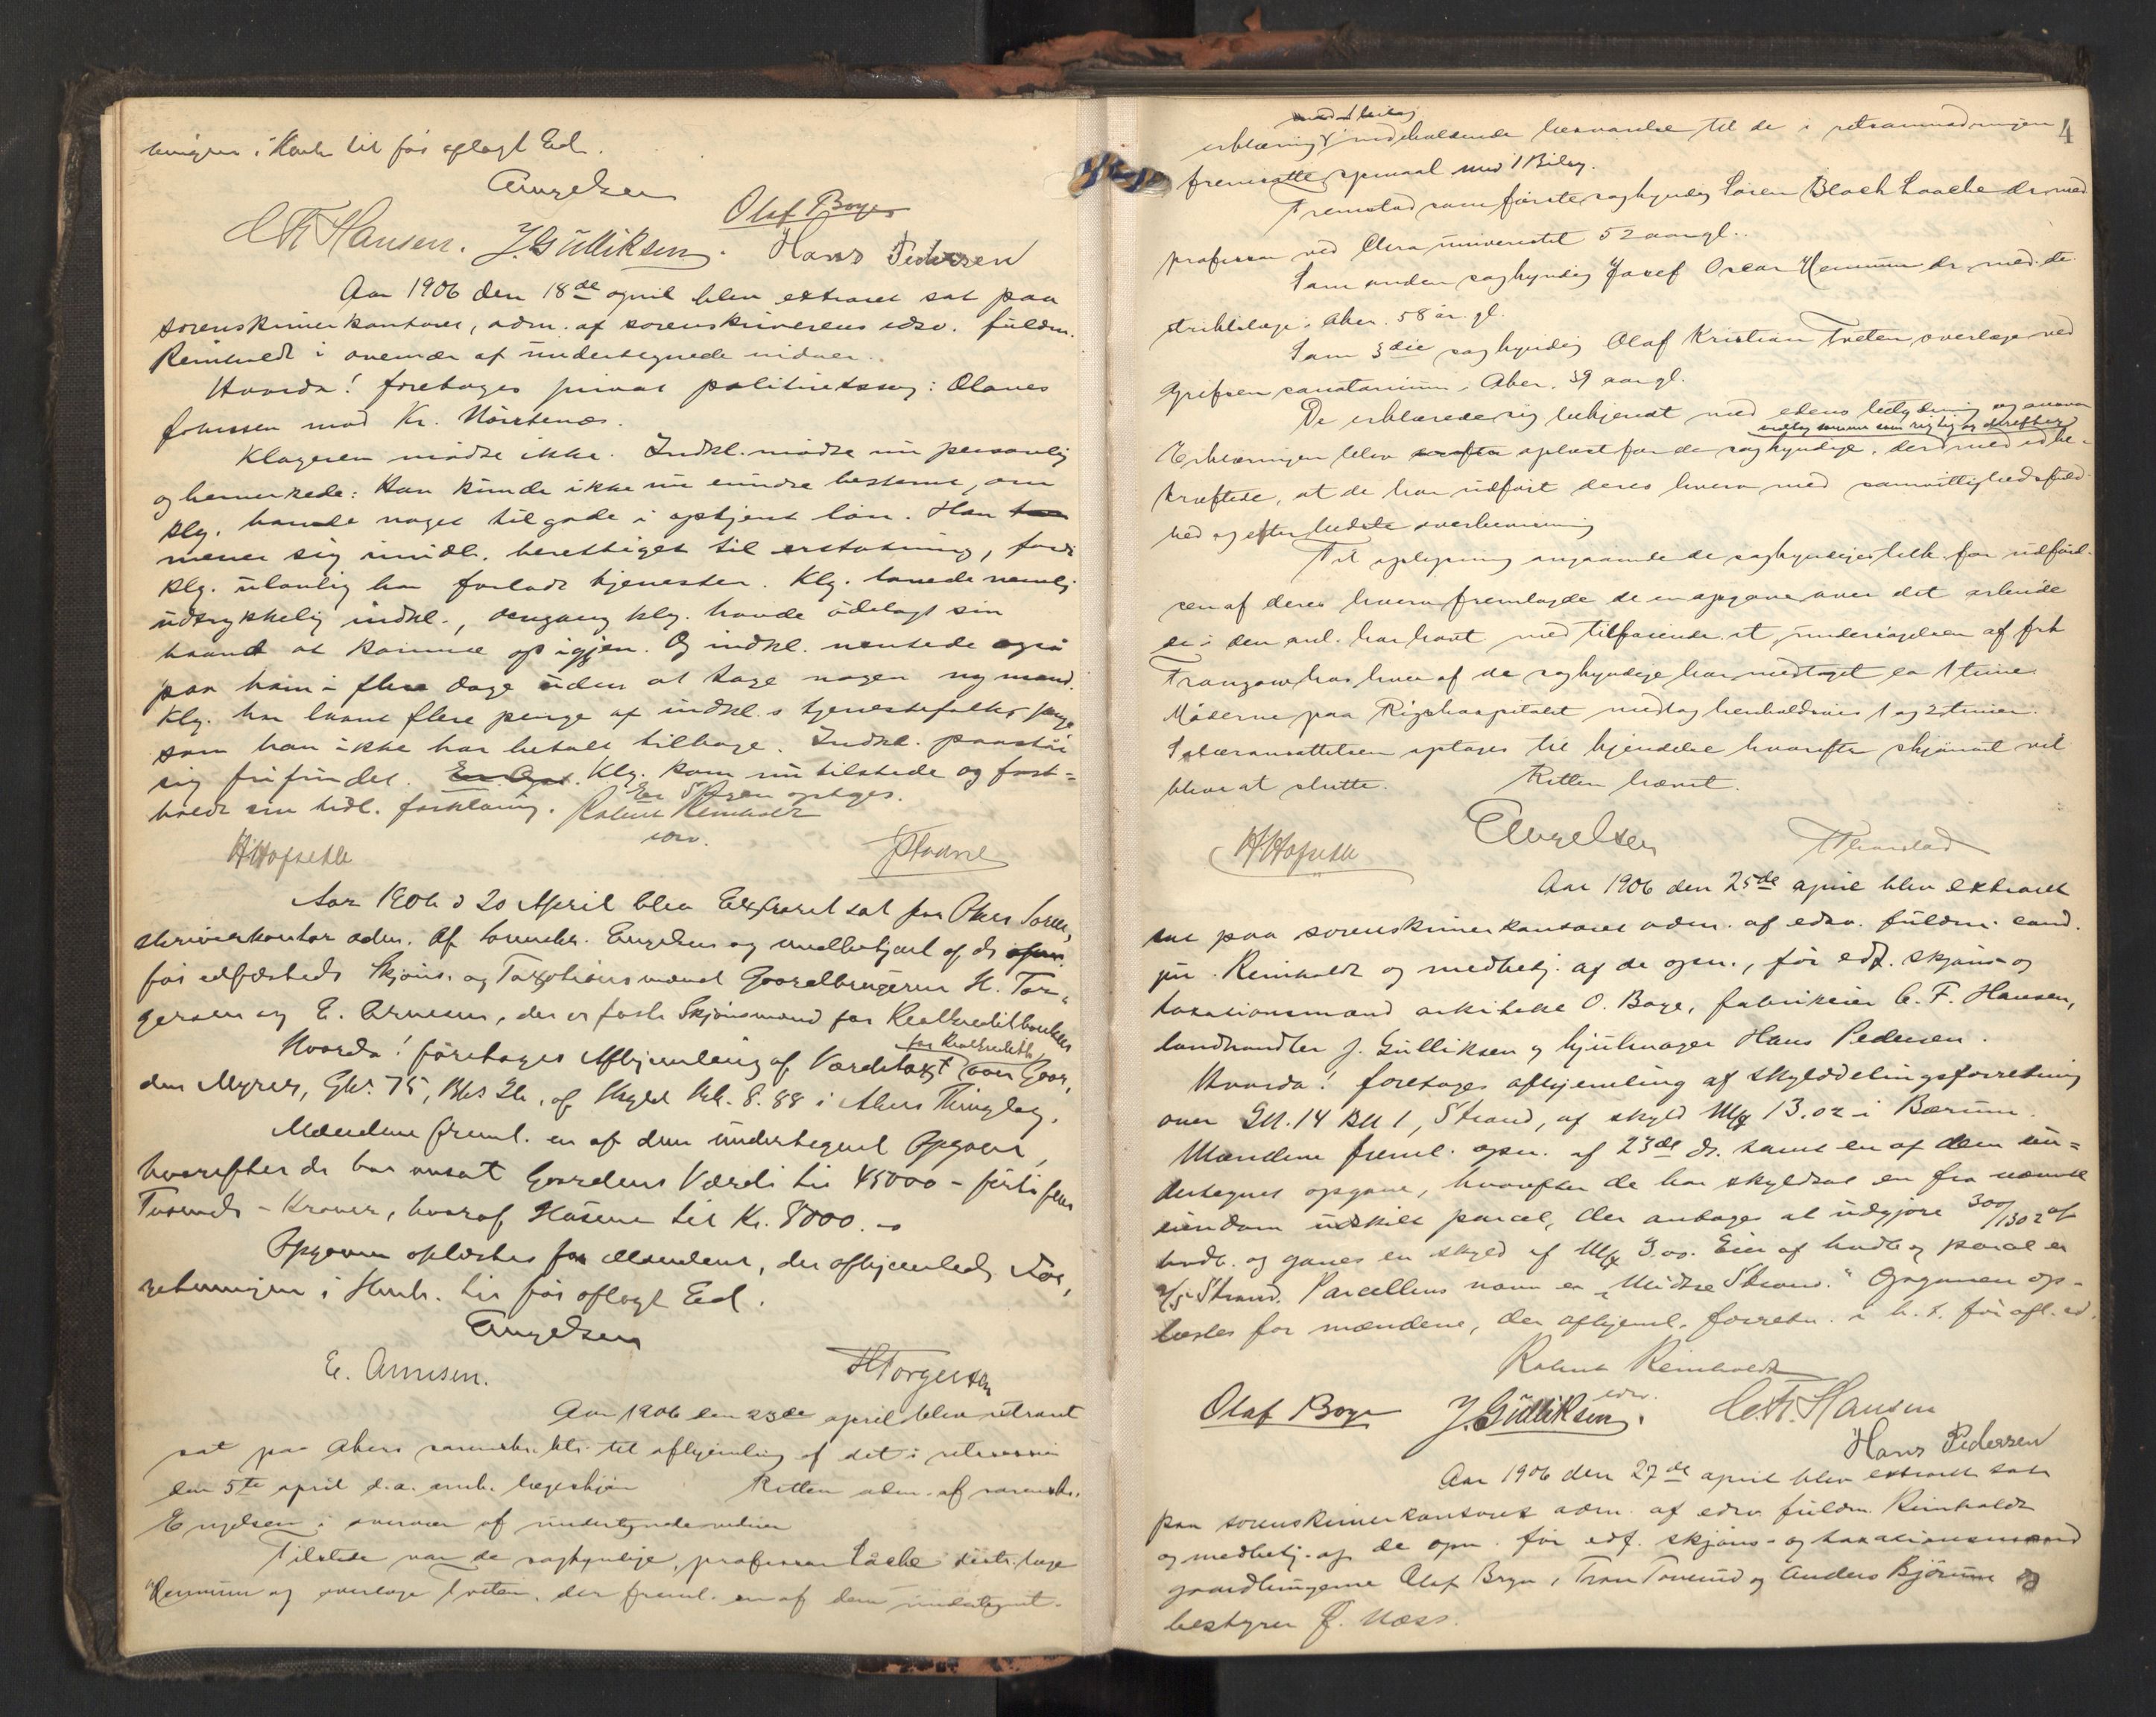 ningen i Henh. til før aflagt Ed.
Engelsen
Olaf Boye
C Fr Hansen. J. Gulliksen. Hans Pedersen
Aar 1906 den 18de april blev extraret sat paa
sorenskriverkontoret, adm. af sorenskriverens edsv. fuldm.
Reinholdt i overvær af undertegnede vidner.
Hvorda! foretoges privat politiretssag: Olaves
Johnssen mod Kr. 
Klageren mødte ikke. Indkl. mødte nu personlig
og bemerkede: Han kunde ikke nu erindre bestemt, om
klg. havde noget tilgode i optjent løn. Han
mener sig imidl. berettiget til erstatning, fordi
klg. ulovlig har forladt tjenesten. Klg. lovede nemlig
udtrykkelig indkl., dengang klg. havde ødelagt sin
haand at komme op igjen. Og indkl. ventede også
paa ham i flere dage uden at tage nogen ny mand.
Klg. har laant flere penge af indkl.s tjenestefolk,
som han ikke har betalt tilbage. Indkl. paastår
sig frifundet. Klg. kom nu tilstede og fast-
holdt sin tidl. forklaring. Sagen optages.
Robert Reinholdt
edsv.
H Hofseth
Aar 1906 d 20 April blev Extraret sat paa Akers Soren,
skriverkontor adm. af sorenskr. Engelsen og medbetjent af de
før edfæstede Skjøns- og Taxationsmænd Gaardbrugerne H. Tor-
gersen og E. Arnesen, der er faste Skjønsmænd for Realkreditbanken
Hvorda! foretoges Afhjemling af Værditaxt for Realkreditb. over Gaar,
den Myrer, Gbr. 75, Bbr 26, af Skyld Mk. 8.88 i Akers Thinglag.
Mændene freml. en af dem undertegnet Opgave,
hvorefter de har ansat Gaardens Værdi til 45000 - førti fem
Tusinde - Kroner, hvoraf Husene til Kr. 8000. -
Opgaven oplæstes for Mændene, der afhjemlede For,
retningen i Henh. til før aflagt Ed.
Engelsen
E. Arnesen.
H Torgersen
Aar 1906 den 23de april blev extraret
sat paa Akers sorenskr. ktr. til afhjemling af det i retssessin
den 5te april d.a. lægeskjøn Retten adm. af sorenskr.
Engelsen i overvær af undertegnede vidner
Tilstede var de sagkyndige, professor Laache distr. læge
Hemmum og overlæge Tveten, der freml. en af dem undertegnet
4
erklæring indeholdende besvarelse til de i retsanmodningen
fremsatte spmaal med 1 Bilag.
Fremstod som første sagkyndig Søren Bloch Laache dr. med
professor ved universitet 52 aar gl.
Som anden sagkyndig Josef Oscar Hemmum dr. med. di-
striktslæge i Aker. 58 år gl.
Som 3die sagkyndig Olaf Kristian Tveten overlæge ved
Grefsen sanatorium, Aker, 39 aar gl.
De erklærede sig bekjendt med edens betydning og ansvar
vedtog samme som rigtig og derefter
Erklæringen blev oplæst for de sagkyndige, der med ed be-
kræftede, at de har udført deres hverv med samvittighedsfuld-
hed og efter bedste overbevisning
Til oplysning angaaende de sagkyndiges tilk. for udførel-
sen af deres hverv fremlagde de en opgave over det arbeide
de i den anl. har havt med tilføiende at undersøgelsen af frk
hos hver af de sagkyndige har medtaget ca 1 time
Møderne paa Rigshospitalet medtog henholdsvis 1 og 2 timer.
optages til kjendelse hvorefter skjønnet vil
blive at slutte.
Retten hævet.
Engelsen
H Hofseth
Aar 1906 den 25de april blev extraret
sat paa sorenskriverkontoret adm. af edsv. fuldm. cand.
jur. Reinholdt og medbetj. af de opn., før edf. skjøns- og
taxationsmænd arkitekt O. Boye, fabrikeier C. F. Hansen,
landhandler J. Gulliksen og hjulmager Hans Pedersen.
Hvorda! foretoges afhjemling af skylddelingsforretning
over GN. 14 BN 1, Strand, af skyld Mk 13.02 i Bærum.
Mændene freml. opn. af 23de ds. samt en af dem un-
dertegnet opgave, hvorefter de har skyldsat en fra nævnte
eiendom udskilt parcel, der antages at udgjøre 300/1302 af
hovdb. og gaves en skyld af Mk 3.00. Eier af hovdb og parcel er
A/S Strand. Parcellens navn er "Midtre Strand." Opgaven op-
læstes for mændene, der afhjeml. forretn. i h. t. før afl. ed.
Robert Reinholdt
edsv.
Olaf Boye J. Gulliksen. C. Fr. Hansen
Hans Pedersen
Aar 1906 den 27de april blev extraret sat
paa sorenskriverkontoret adm. af edsv. fuldm. Reinholdt
og medbetj. af de opn. før edf. skjøns- og taxationsmænd
gaardbrugerne Olaf Bryn, og Anders Bjørum og
bestyrer F. Næss.